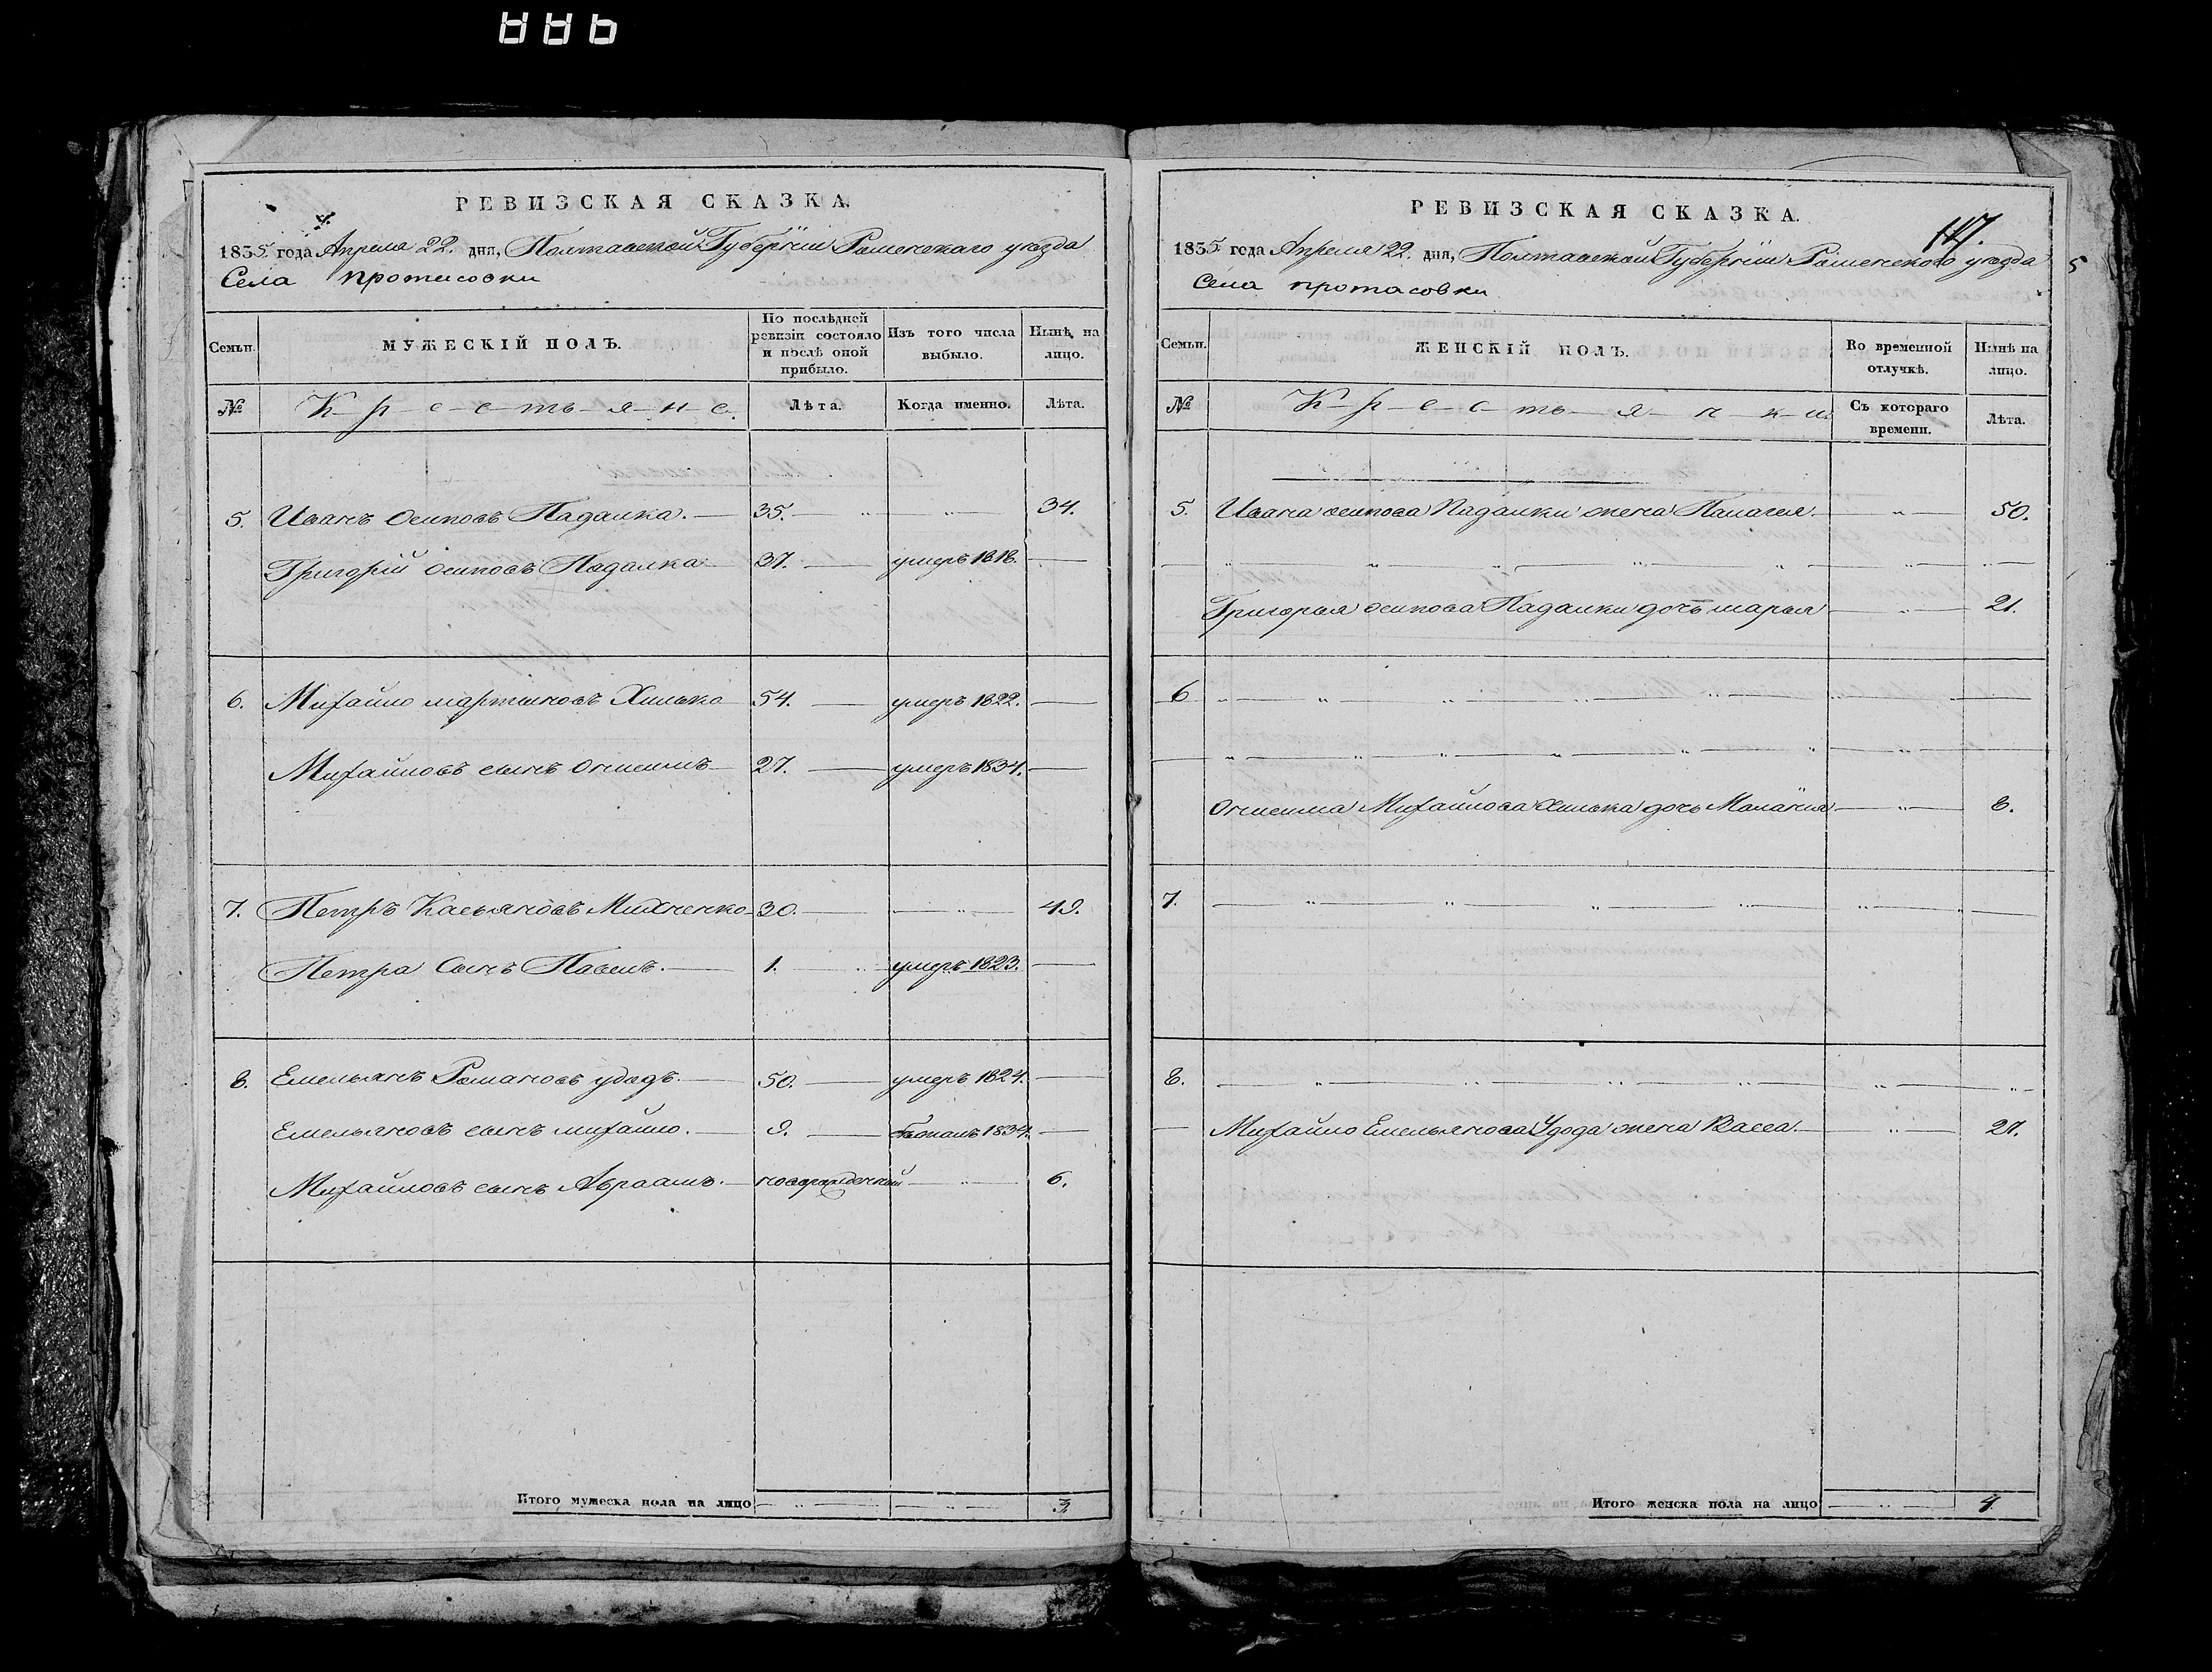 РЕВИЗСКАЯ СКАЗКА.
4.
1835 года Апреля 22. дня, Полтавской Губерніи Роменскаго уезда
Села протасовки
Семьи. МУЖЕСКІЙ ПОЛЪ. По послѣдней ревизіи состояло и послѣ оной прибыло. Изъ того числа выбыло. Нынѣ на лицо.
№ К-р-е-с-ть-я-н-е. Лѣта. Когда именно. Лѣта.
5. Иванъ Осиповъ Падалка. 35. 34.
Григорій осиповъ Падалка 37. умеръ 1818.
6. Михайло мартыновъ Хилько 54. умеръ 1822.
Михайловъ сынъ Онисимъ 27. умеръ 1834.
7. Петръ Касьяновъ Михненко 30. 49.
Петра Сынъ Павелъ. 1. умеръ 1823.
8. Емельянъ Романовъ удодъ. 50. умеръ 1824.
Емельяновъ сынъ михайло. 9. 1834.
Михайловъ сынъ Авраамъ. новорожденный 6.
Итого мужеска пола на лицо 3
РЕВИЗСКАЯ СКАЗКА.
117.
1835 года Апреля 22. дня, Полтавской Губерніи Роменскаго уезда
5
Села протасовки
Семьи. ЖЕНСКІЙ ПОЛЪ. Во временной отлучкѣ. Нынѣ на лицо.
№ К-р-е-с-ть-я-н-к-и. Съ котораго времени. Лѣта.
5. Ивана осипова Падалки жена Палагея. 50.
Григорья осипова Падалки дочь марья 21.
6
Онисима Михайлова Хилька дочь Маланія 8.
7.
8.
Михайло Емельянова Удода жена Васса. 27.
Итого женска пола на лицо 4